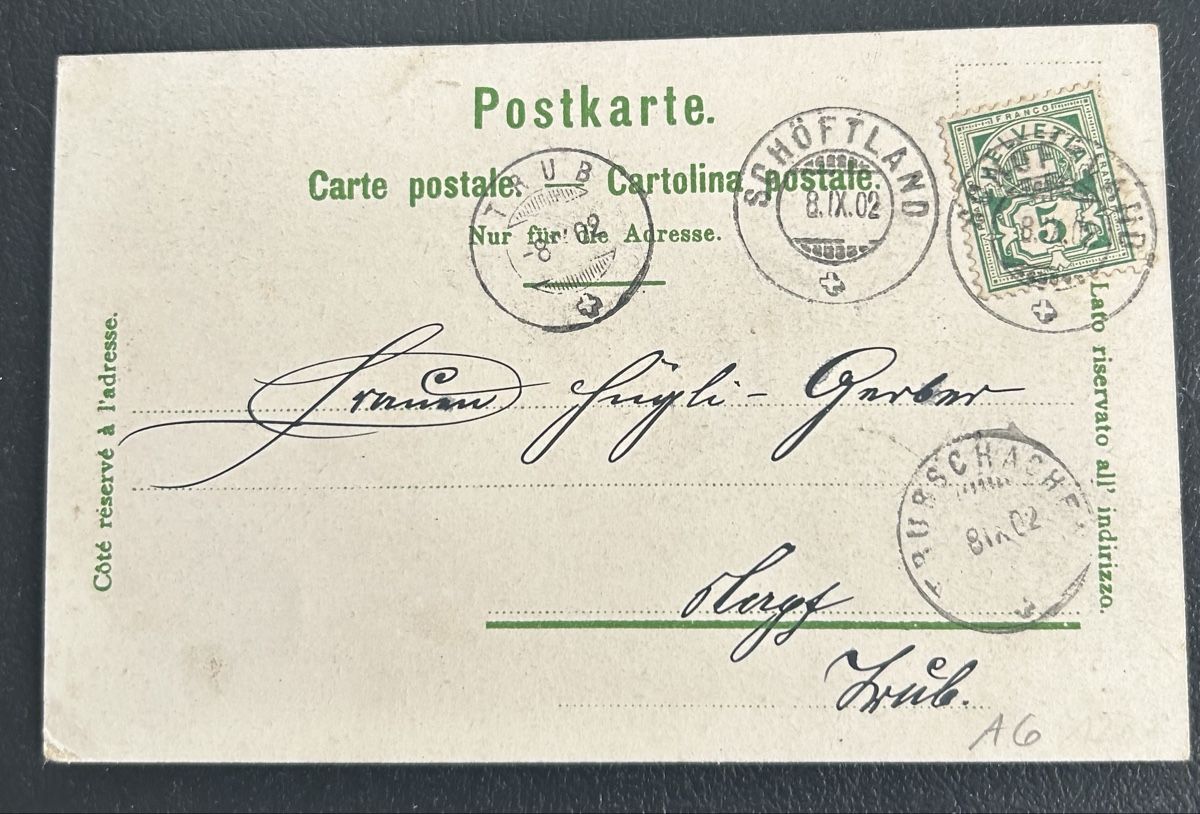 Postkarte.
Carte postale. — Cartolina postale.
Nur für die Adresse.
TRUB
-8 02
SCHÖFTLAND
8.IX.02
FRANCO
HELVETIA
5
8.IX.02
Côté réservé à l'adresse.
Lato riservato all' indirizzo.
Frauen Hügli-Gerber
TRUBSCHACHEN
8 IX 02
Trub.
A6